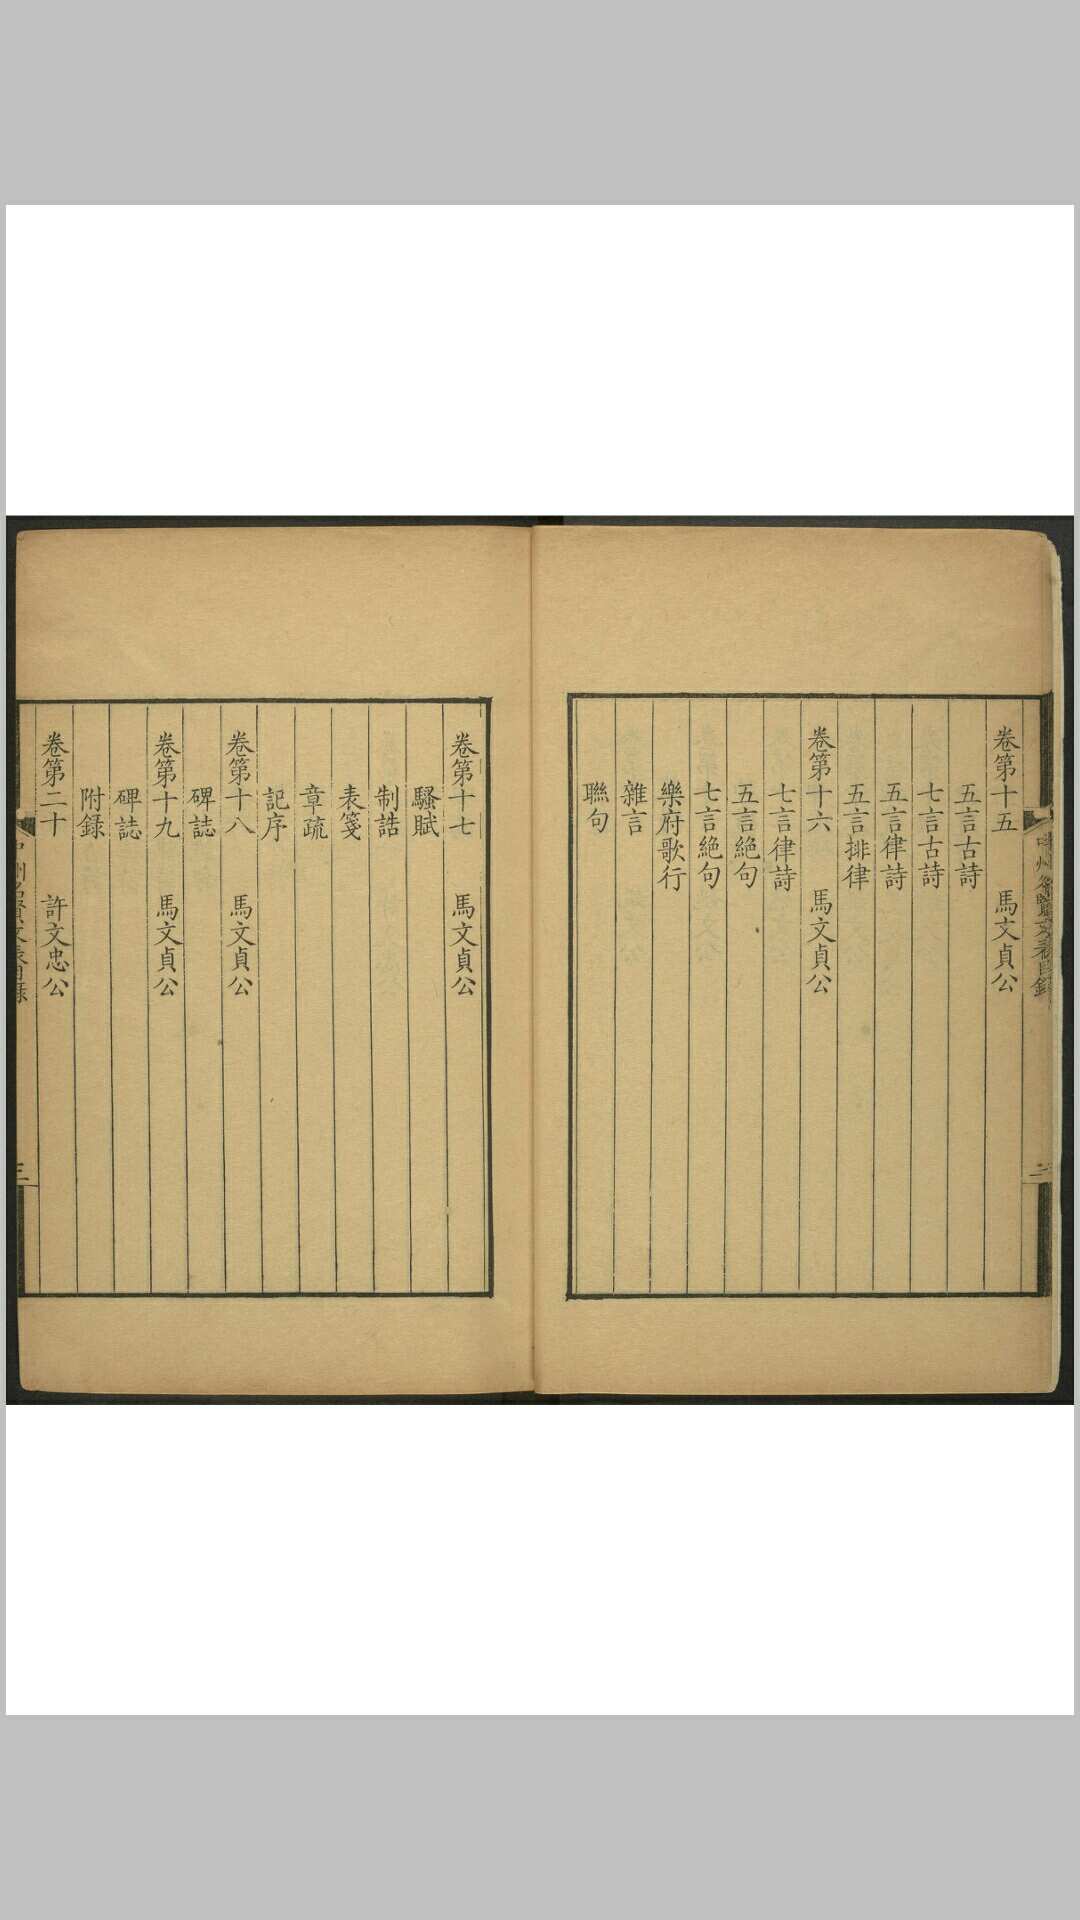 中州名賢文表目録
二
卷第十五 馬文貞公
五言古詩
七言古詩
五言律詩
五言排律
卷第十六 馬文貞公
七言律詩
五言絶句
七言絶句
樂府歌行
雜言
聯句
卷第十七 馬文貞公
騷賦
制誥
表箋
章疏
記序
卷第十八 馬文貞公
碑誌
卷第十九 馬文貞公
碑誌
附録
卷第二十 許文忠公
中州名賢文表目録
三